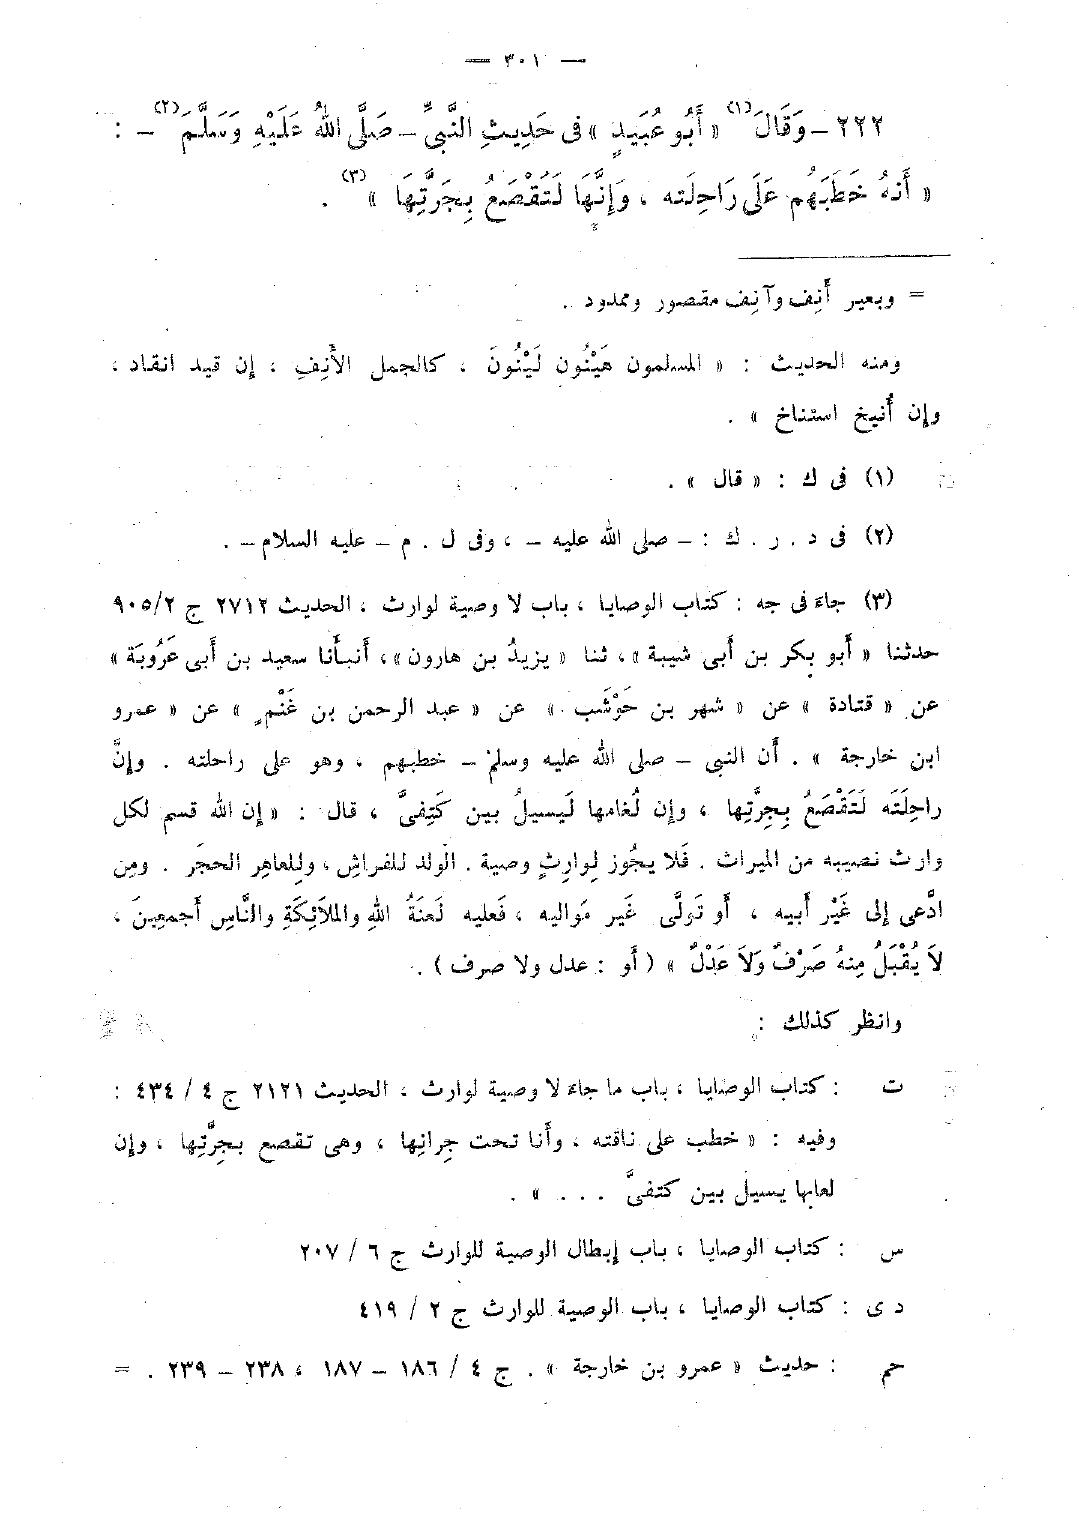 — ٣٠١ —
٢٢٢ – وَقَالَ (١) « أَبُو عُبَيدٍ » فى حَدِيثِ النَّبِىِّ – صَلَّى اللهُ عَلَيْهِ وَسَلَّمَ (٢) – :
« أَنهُ خَطَبَهُم عَلَى رَاحِلَته ، وَإِنَّهَا لَتَقْصَعُ بِجَرَّتِهَا » (٣) .
= وبعير أَنِف وآنِف مقصور وممدود .
ومنه الحديث : « المسلمون هَيْنُون لَيْنُونَ ، كالجمل الأَنِفِ ، إن قيد انقاد ،
وإن أُنيخ استناخ » .
(١) فى ك : « قال » .
(٢) فى د . ر . ك : – صلى الله عليه – ، وفى ل . م – عليه السلام – .
(٣) جاءَ فى جه : كتاب الوصايا ، باب لا وصية لوارث ، الحديث ٢٧١٢ ج ٩٠٥/٢
حدثنا « أَبو بكر بن أَبى شيبة » ، ثنا « يزيدُ بن هارون » ، أَنبأَنا سعيد بن أَبى عَرُوبَة »
عن « قتادة » عن « شهر بن حَوْشَب » عن « عبد الرحمن بن غَنْمٍ » عن « عمرو
ابن خارجة » . أَن النبى – صلى الله عليه وسلم – خطبهم ، وهو على راحلته . وإنَّ
راحلَتَه لَتَقْصَعُ بِجِرَّتِها ، وإن لُغامها لَيسيلُ بين كَتِفىَّ ، قال : « إن الله قسم لكل
وارث نصيبه من الميراث . فَلا يجُوز لِوارثٍ وصية . الولد للفراشِ ، وللعاهِر الحجَر . ومِن
ادَّعى إلى غَيْر أَبيه ، أَو تَولَّى غَير مَواليه ، فَعليه لَعنَةُ اللهِ والملَائِكَةِ والنَّاسِ أَجمعِينَ ،
لَا يُقْبَلُ مِنهُ صَرْفٌ وَلَا عَدْلٌ » ( أَو : عدل ولا صرف ) .
وانظر كذلك :
ت : كتاب الوصايا ، باب ما جاءَ لا وصية لوارث ، الحديث ٢١٢١ ج ٤ / ٤٣٤ :
وفيه : « خطب على ناقته ، وأَنا تحت جِرانِها ، وهى تقصع بجِرَّتِها ، وإن
لعابها يسيل بين كتفىَّ . . . » .
س : كتاب الوصايا ، باب إبطال الوصية للوارث ج ٦ / ٢٠٧
د ى : كتاب الوصايا ، باب الوصية للوارث ج ٢ / ٤١٩
حم : حديث « عمرو بن خارجة » . ج ٤ / ١٨٦ – ١٨٧ ، ٢٣٨ – ٢٣٩ . =